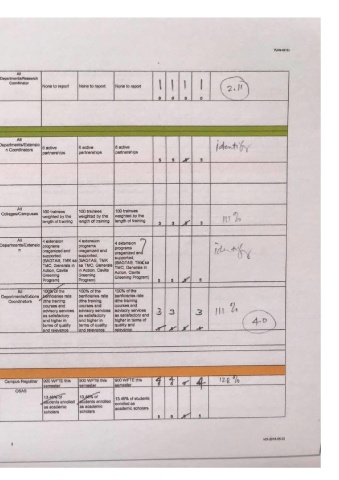 All
Departments/Research
Coordinator
None to report
None to report
None to report
1 1 1 1
2.11
All
Departments/Extensio
n Coordinators
6 active
partnerships
6 active
partnerships
6 active
partnerships
5 5 5
identify
All
Colleges/Campuses
100 trainees
weighted by the
length of training
100 trainees
weighted by the
length of training
100 trainees
weighted by the
length of training
3 3 3
111 %
All
Departments/Extensio
n
4 extension
programs
organized and
supported.
4 extension
programs
organized and
supported.
4 extension
programs
organized and
supported.
TMC, Generals in
Action, Cavite
Greening
Program)
identify
5 5 5
All
Departments/Extens
Coordinators
100% of the
beneficiaries rate
the training
courses and
advisory services
as satisfactory
and higher in
terms of quality
and relevance
100% of the
beneficiaries rate
the training
courses and
advisory services
as satisfactory
and higher in
terms of quality
and relevance
100% of the
beneficiaries rate
the training
courses and
advisory services
as satisfactory and
higher in terms of
quality and
relevance
3 3 3
111 %
4.0
Campus Registrar
900 WFTE this
semester
900 WFTE this
semester
900 WFTE this
semester
4 4 4
OSAS
15.46% of
students enrolled
as academic
scholars
15.46% of
students enrolled
as academic
scholars
15.46% of students
enrolled as
academic scholars
5 5 5